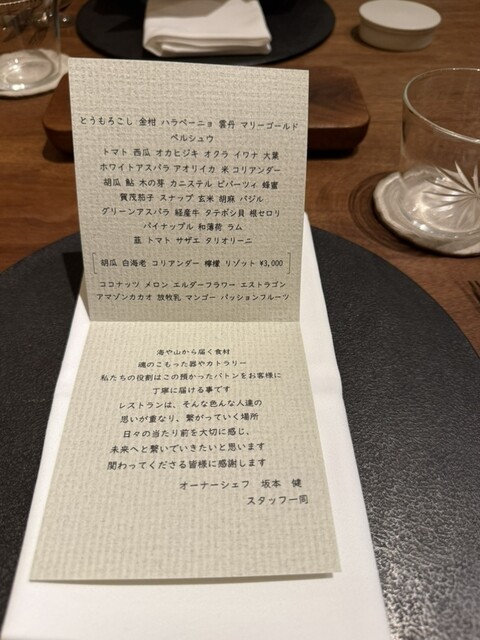 とうもろこし 金柑 ハラペーニョ 雲丹 マリーゴールド
ペルシュウ
トマト 西瓜 オカヒジキ オクラ イワナ 大葉
ホワイトアスパラ アオリイカ 米 コリアンダー
胡瓜 鮎 木の芽 カニステル ピパーツィ 蜂蜜
賀茂茄子 スナップ 玄米 胡麻 バジル
グリーンアスパラ 経産牛 タテボシ貝 根セロリ
パイナップル 和薄荷 ラム
韮 トマト サザエ タリオリーニ
胡瓜 白海老 コリアンダー 檸檬 リゾット ¥3,000
ココナッツ メロン エルダーフラワー エストラゴン
アマゾンカカオ 放牧乳 マンゴー パッションフルーツ
海や山から届く食材
魂のこもった器やカトラリー
私たちの役割はこの預かったバトンをお客様に
丁寧に届ける事です
レストランは、そんな色んな人達の
思いが重なり、繋がっていく場所
日々の当たり前を大切に感じ、
未来へと繋いでいきたいと思います
関わってくださる皆様に感謝します
オーナーシェフ 坂本 健
スタッフ一同